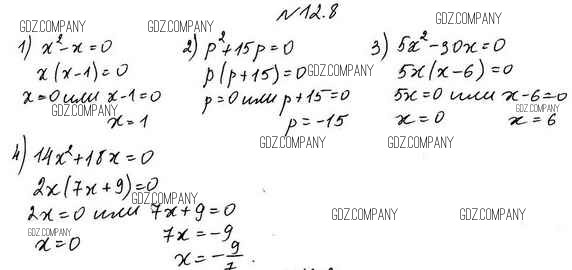 №12.8
GDZ.COMPANY GDZ.COMPANY GDZ.COMPANY
1) x²-x=0 2) p²+15p=0 3) 5x²-30x=0
GDZ.COMPANY
x(x-1)=0 p(p+15)=0 GDZ.COMPANY 5x(x-6)=0
x=0 или x-1=0 p=0 или p+15=0 5x=0 или x-6=0
GDZ.COMPANY GDZ.COMPANY
x=1 p=-15 x=0 x=6
GDZ.COMPANY GDZ.COMPANY
4) 14x²+18x=0
2x(7x+9)=0
GDZ.COMPANY
2x=0 или 7x+9=0 GDZ.COMPANY GDZ.COMPANY
GDZ.COMPANY
x=0 7x=-9
x=-9/7.